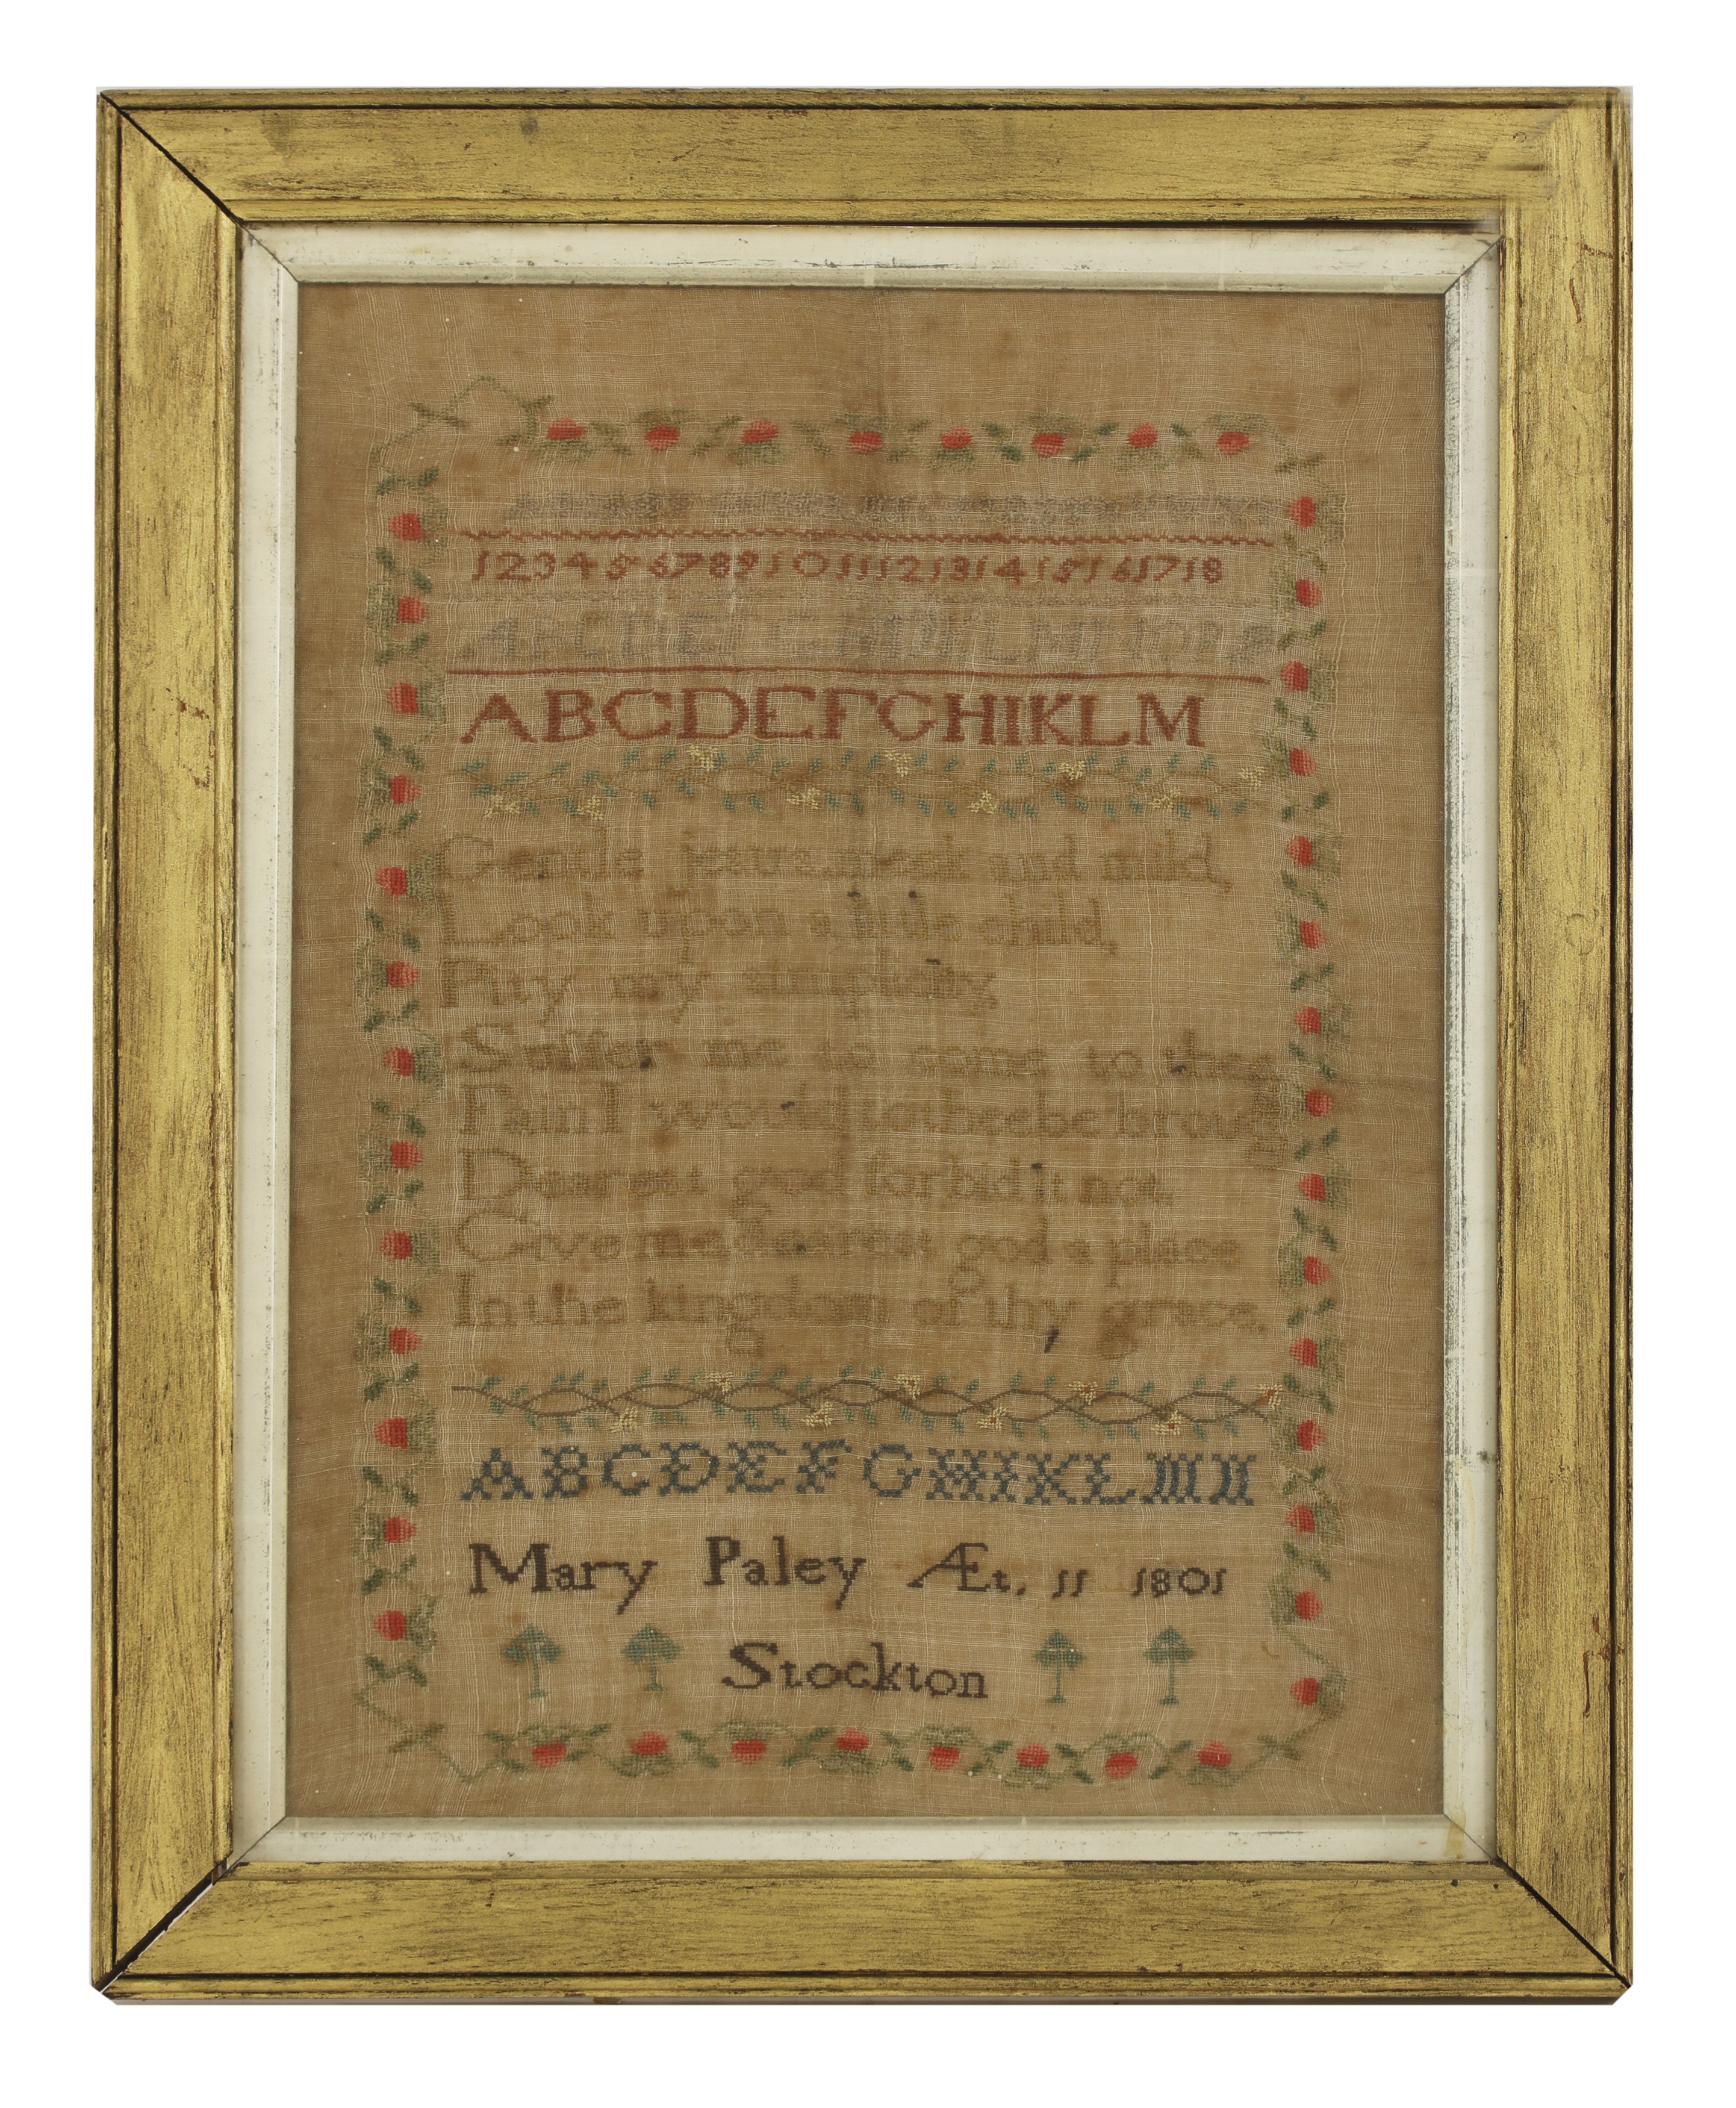 1 2 3 4 5 6 7 8 9 1 0 1 1 1 2 1 3 1 4 1 5 1 6 1 7 1 8
A B C D E F G H I K L M N O P
A B C D E F G H I K L M
Gentle jesus meek and mild,
Look upon a little child,
Pity my simplicity,
Suffer me to come to thee
Fain I would to thee be broug
Dearest god forbid it not,
Give me dearest god a place
In the kingdom of thy grace.
A B C D E F G H I K L M N
Mary Paley Æt. 11 1801
Stockton